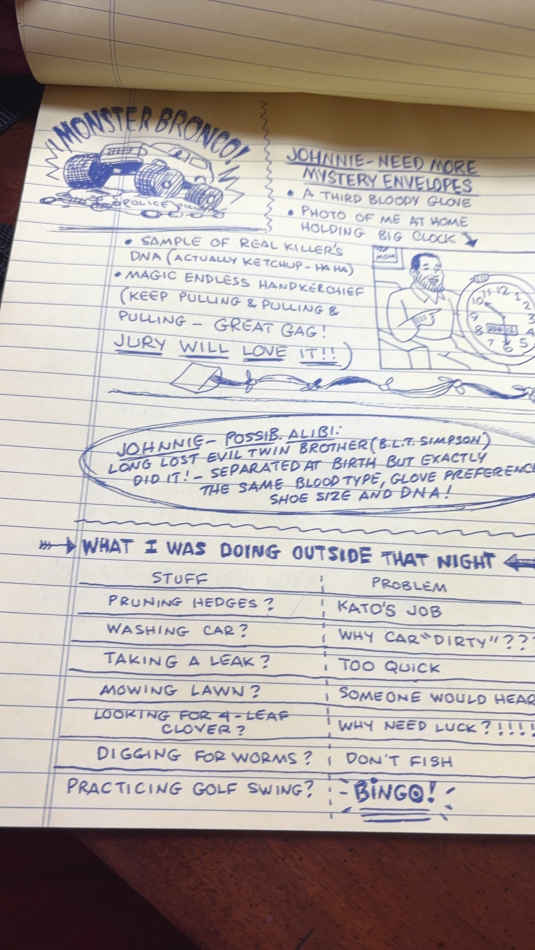 MONSTER BRONCO!
POLICE
JOHNNIE - NEED MORE
MYSTERY ENVELOPES
• A THIRD BLOODY GLOVE
• PHOTO OF ME AT HOME
HOLDING BIG CLOCK
• SAMPLE OF REAL KILLER'S
DNA (ACTUALLY KETCHUP - HA HA)
• MAGIC ENDLESS HANDKERCHIEF
(KEEP PULLING & PULLING &
PULLING - GREAT GAG!
JURY WILL LOVE IT!!)
MOM
10 11 12 1
2
9 3
8
7 6 5
JOHNNIE - POSSIB. ALIBI:
LONG LOST EVIL TWIN BROTHER (B.L.T. SIMPSON)
DID IT! - SEPARATED AT BIRTH BUT EXACTLY
THE SAME BLOOD TYPE, GLOVE PREFERENCE
SHOE SIZE AND DNA!
WHAT I WAS DOING OUTSIDE THAT NIGHT
STUFF PROBLEM
PRUNING HEDGES? KATO'S JOB
WASHING CAR? WHY CAR "DIRTY"???
TAKING A LEAK? TOO QUICK
MOWING LAWN? SOMEONE WOULD HEAR
LOOKING FOR 4-LEAF
CLOVER? WHY NEED LUCK?!!!!
DIGGING FOR WORMS? DON'T FISH
PRACTICING GOLF SWING? - BINGO!